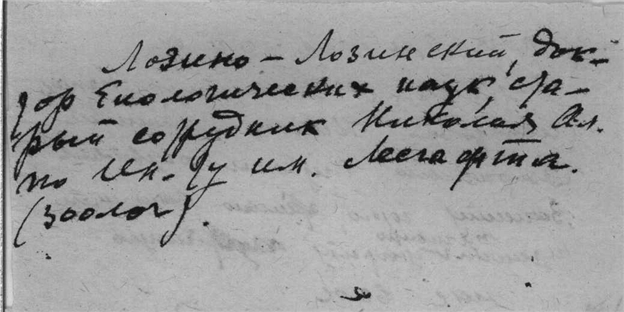 Лозино-Лозинский, док-
тор биологических наук, ста-
рый сотрудник Николая Ал.
по Ин-ту им. Лесгафта.
(зоолог)